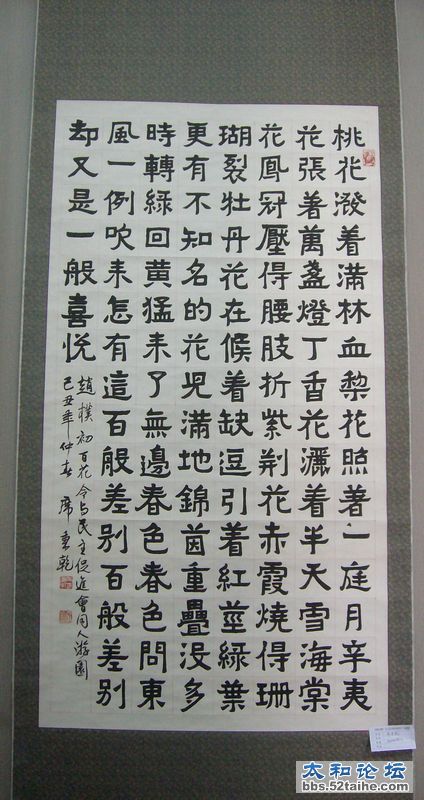 桃花潑着滿林血梨花照著一庭月辛夷
花張着萬盞燈丁香花灑着半天雪海棠
花鳳冠壓得腰肢折紫荊花赤霞燒得珊
瑚裂牡丹花在候着缺逗引着紅莖綠葉
更有不知名的花児滿地錦茵重疊没多
時轉綠回黄猛来了無邊春色春色問東
風一例吹来怎有這百般差别百般差别
却又是一般喜悦
趙樸初百花令与民主促進會同人游園
己丑年仲春席東乾
太和论坛
bbs.52taihe.com